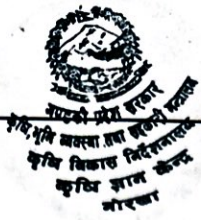 गण्डकी प्रदेश सरकार
कृषि, भूमि व्यवस्था तथा सहकारी मन्त्रालय
कृषि विकास निर्देशनालय
कृषि ज्ञान केन्द्र
गोरखा